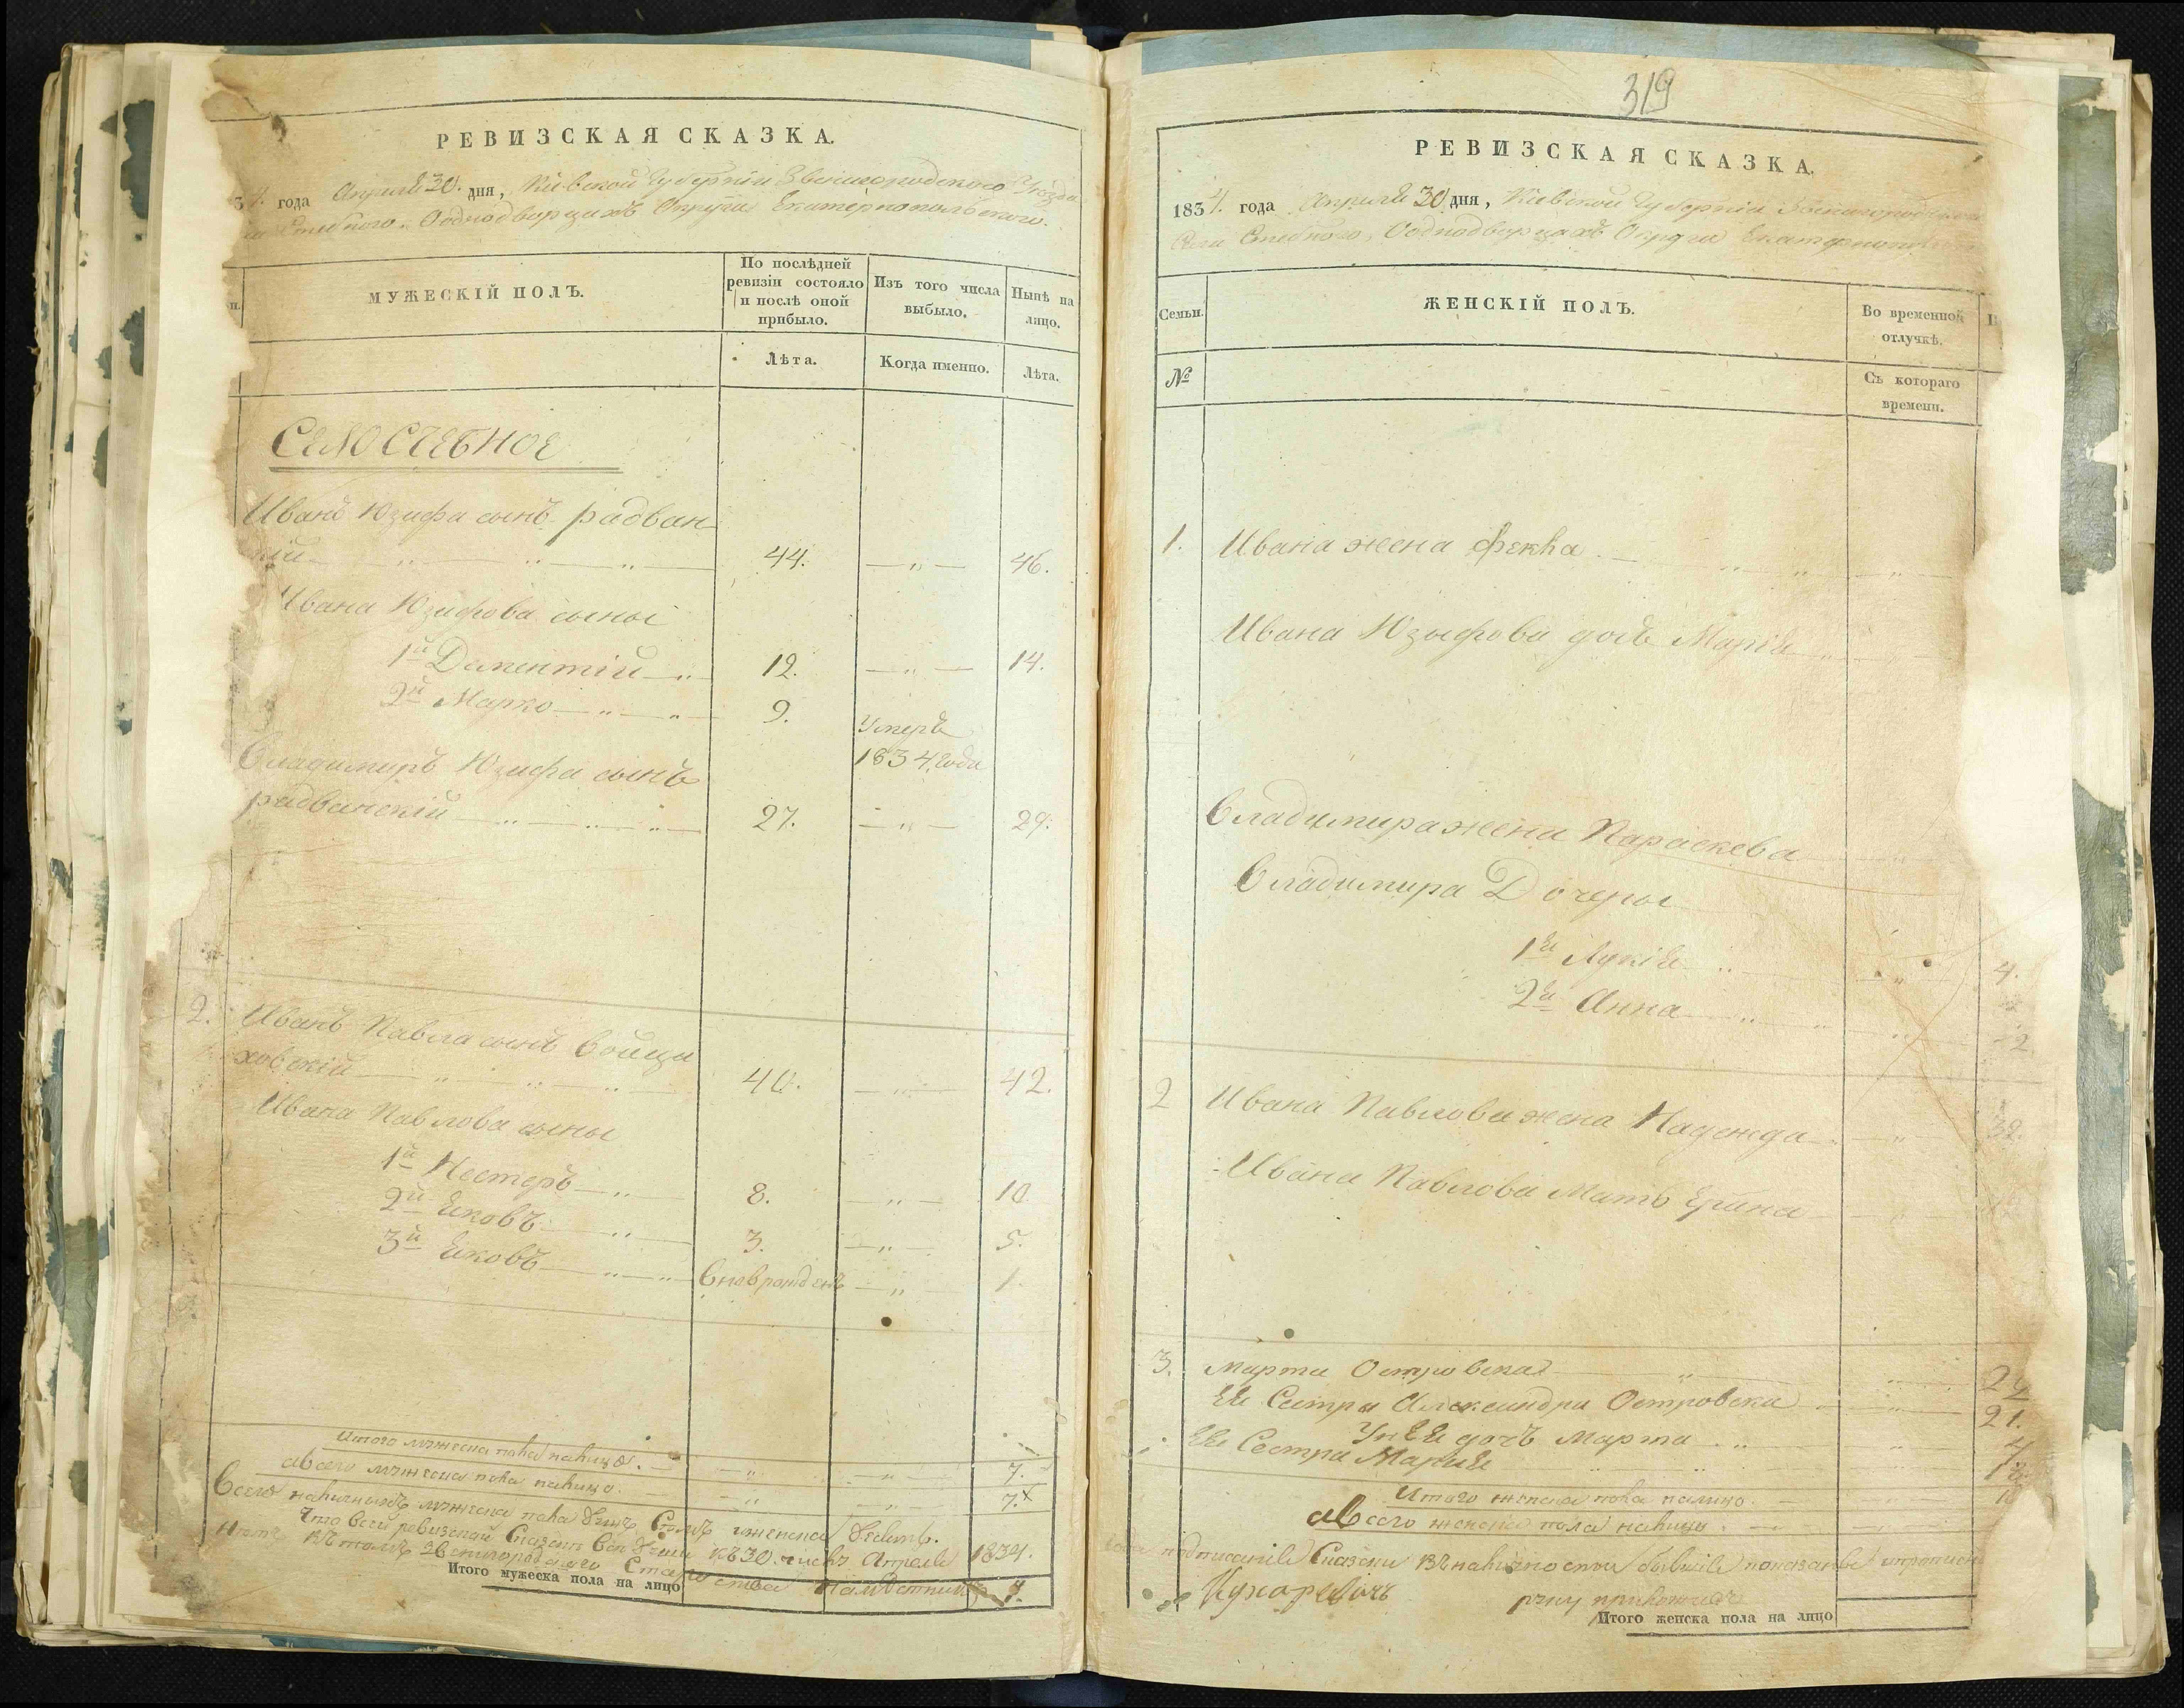 РЕВИЗСКАЯ СКАЗКА.
34. года Апреля 30. дня, Кіевской Губерніи Звенигородского Уезда
Стебного. Оодноdворцахъ Округа Екатеринопольского.
МУЖЕСКІЙ ПОЛЪ.
По послѣдней ревизіи состояло и послѣ оной прибыло.
Изъ того числа выбыло.
Нынѣ на лицо.
Лѣта.
Когда именно.
Лѣта.
Село Стебное
Иванъ Юзифа сынъ радван
кій 44. 46.
Ивана Юзифова сыны
1й Дементій 12. 14.
2й Марко 9. Умеръ
1834 года
Владимиръ Юзифа сынъ
радванскій 27. 29.
2. Иванъ Павла сынъ Войци
ховскій 40. 42.
Ивана Павлова сыны
1й Нестеръ 8. 10
2й Яковъ 3. 5.
3й Яковъ Вновъ рожденъ 1.
Итого мужеска пола налицо. 7.
А всего мужеска пола налицо. 7.
Всего наличныхъ мужеска пола душъ Семъ женска
Что въ сей ревизской Сказки все души къ 30. числу Апреля 1834.
Въ томъ Звенигородского Староства Наместникъ
Итого мужеска пола на лицо 7.
319
РЕВИЗСКАЯ СКАЗКА.
1834. года Апреля 30 дня, Кіевской Губерніи Звенигородского
Села Стебного, Оодноdворцахъ Округа Екатеринополь
Семьи.
ЖЕНСКІЙ ПОЛЪ.
Во временной отлучкѣ.
№
Съ котораго времени.
1. Ивана жена Фекла
Ивана Юзыфова дочъ Марія
Владимира жена Параскева
Владимира Дочеры
1я Лукія 4.
2я Анна 2
2 Ивана Павлова жена Надежда 32.
Ивана Павлова Мать Ерина
3. Марта Островска
Ея Сестра Александра Островска 21.
У нея дочъ Марта
Ея Сестра Марія
Итого женска пола налицо.
А всего женска пола налицо.
подписаніе Сказки въ наличности бывшіе показаны
Кухаревичъ
руку приложилъ
Итого женска пола на лицо